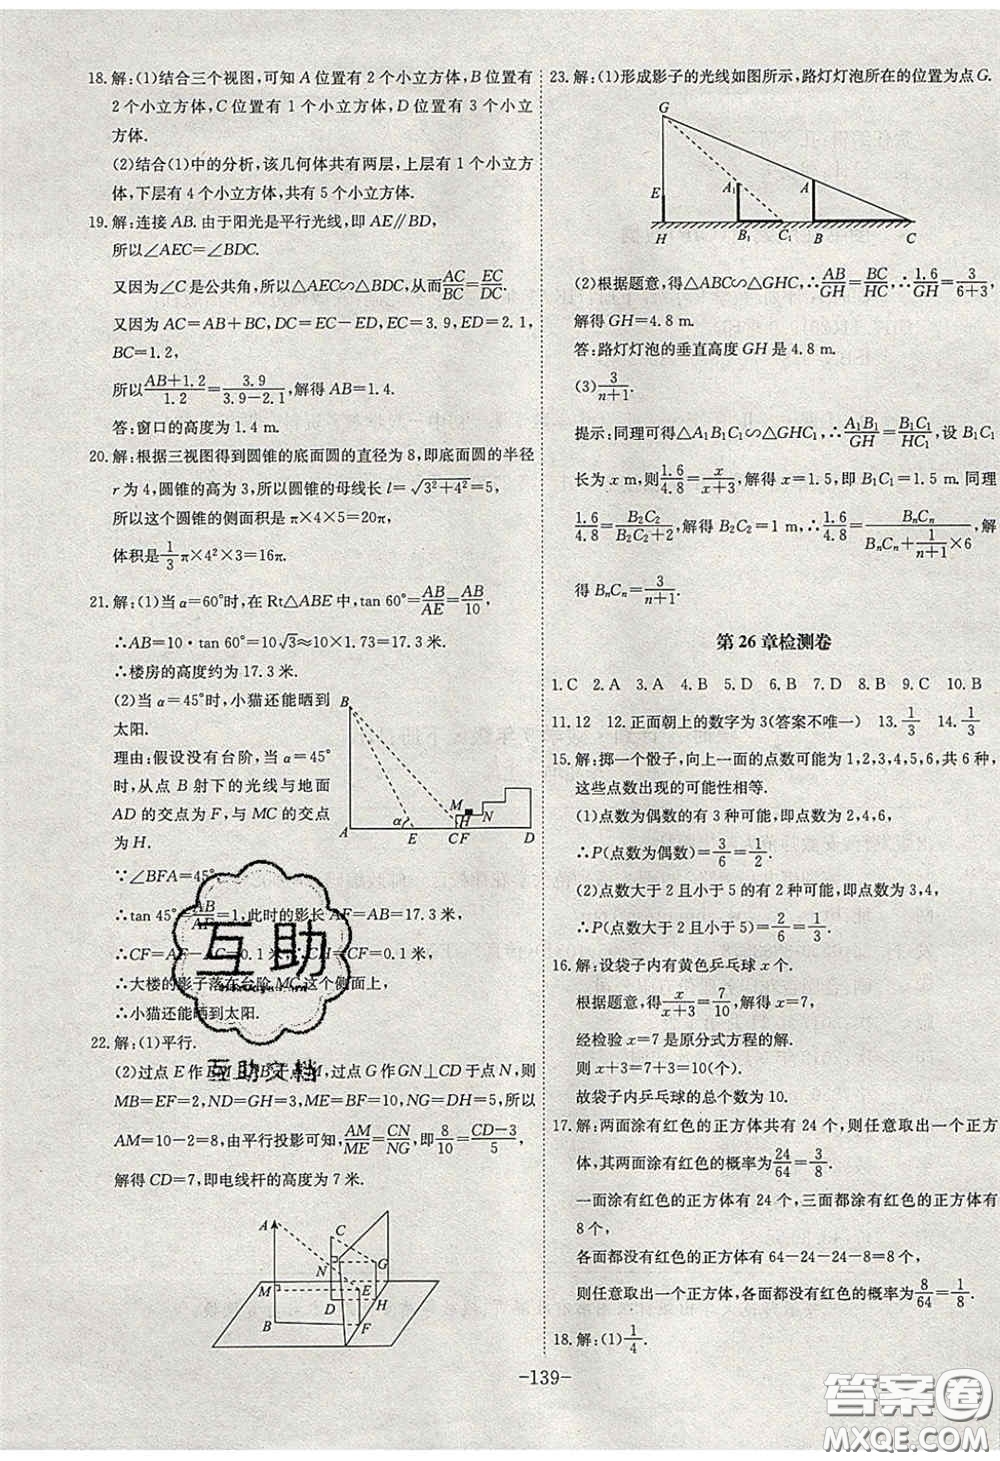 18. 解:(1)结合三个视图,可知 A 位置有 2 个小立方体,B 位置有
2 个小立方体,C 位置有 1 个小立方体,D 位置有 3 个小立
方体.
(2)结合(1)中的分析,该几何体共有两层,上层有 1 个小立方
体,下层有 4 个小立方体,共有 5 个小立方体.
19. 解:连接 AB. 由于阳光是平行光线,即 AE∥BD,
所以∠AEC=∠BDC.
又因为∠C 是公共角,所以△AEC∽△BDC,从而有AC/BC=EC/DC.
又因为 AC=AB+BC,DC=EC-ED,EC=3.9,ED=2.1,
BC=1.2,
所以(AB+1.2)/1.2=3.9/(3.9-2.1),解得 AB=1.4.
答:窗口的高度为 1.4 m.
20. 解:根据三视图得到圆锥的底面圆的直径为 8,即底面圆的半径
r 为 4,圆锥的高为 3,所以圆锥的母线长 l=√(3²+4²)=5,
所以这个圆锥的侧面积是 π×4×5=20π,
体积是1/3π×4²×3=16π.
21. 解:(1)当 α=60°时,在 Rt△ABE 中,tan 60°=AB/AE=AB/10,
∴AB=10·tan 60°=10√3≈10×1.73=17.3 米.
∴楼房的高度约为 17.3 米.
(2)当 α=45°时,小猫还能晒到
太阳.
理由:假设没有台阶,当 α=45°
时,从点 B 射下的光线与地面
AD 的交点为 F,与 MC 的交点
为 H.
∵∠BFA=45°,
∴tan 45°=AB/AF=1,此时的影长 AF=AB=17.3 米,
∴CF=AF-AC=0.1 米,∴CH=CF=0.1 米,
∴大楼的影子落在台阶 MC 这个侧面上,
∴小猫还能晒到太阳.
B
M
H
N
α
A
E
C F
D
22. 解:(1)平行.
(2)过点 E 作 EM⊥AB 于点 M,过点 G 作 GN⊥CD 于点 N,则
MB=EF=2,ND=GH=3,ME=BF=10,NG=DH=5,所以
AM=10-2=8,由平行投影可知,AM/ME=CN/NG,即8/10=(CD-3)/5,
解得 CD=7,即电线杆的高度为 7 米.
A
C
N
G
M
E
D
H
B
F
23. 解:(1)形成影子的光线如图所示,路灯灯泡所在的位置为点 G.
G
E
A₁
A
H
B₁
C₁
B
C
(2)根据题意,得△ABC∽△GHC,∴AB/GH=BC/HC,∴1.6/GH=3/(6+3),
解得 GH=4.8 m.
答:路灯灯泡的垂直高度 GH 是 4.8 m.
(3)3/(n+1).
提示:同理可得△A₁B₁C₁∽△GHC₁,∴A₁B₁/GH=B₁C₁/HC₁,设 B₁C₁
长为 x m,则1.6/4.8=x/(x+3),解得 x=1.5,即 B₁C₁=1.5 m. 同理
1.6/4.8=B₂C₂/(B₂C₂+2),解得 B₂C₂=1 m,∴1.6/4.8=BₙCₙ/(BₙCₙ+1/(n+1)×6),解
得 BₙCₙ=3/(n+1).
第 26 章检测卷
1.C 2.A 3.A 4.B 5.D 6.B 7.D 8.B 9.C 10.B
11.12 12.正面朝上的数字为 3(答案不唯一) 13.1/3 14.1/3
15. 解:掷一个骰子,向上一面的点数可能为 1,2,3,4,5,6,共 6 种,
这些点数出现的可能性相等.
(1)点数为偶数的有 3 种可能,即点数为 2,4,6,
∴P(点数为偶数)=3/6=1/2.
(2)点数大于 2 且小于 5 的有 2 种可能,即点数为 3,4,
∴P(点数大于 2 且小于 5)=2/6=1/3.
16. 解:设袋子内有黄色乒乓球 x 个.
根据题意,得x/(x+3)=7/10,解得 x=7,
经检验 x=7 是原分式方程的解.
则 x+3=7+3=10(个).
故袋子内乒乓球的总个数为 10.
17. 解:两面涂有红色的正方体共有 24 个,则任意取出一个正方
体,其两面涂有红色的概率为24/64=3/8.
一面涂有红色的正方体有 24 个,三面都涂有红色的正方体有
8 个,
各面都没有红色的正方体有 64-24-24-8=8 个,
则任意取出一个正方体,各面都没有红色的概率为8/64=1/8.
18. 解:(1)1/4.
-139-
互助
互助文档
答案圈
MXQE.COM